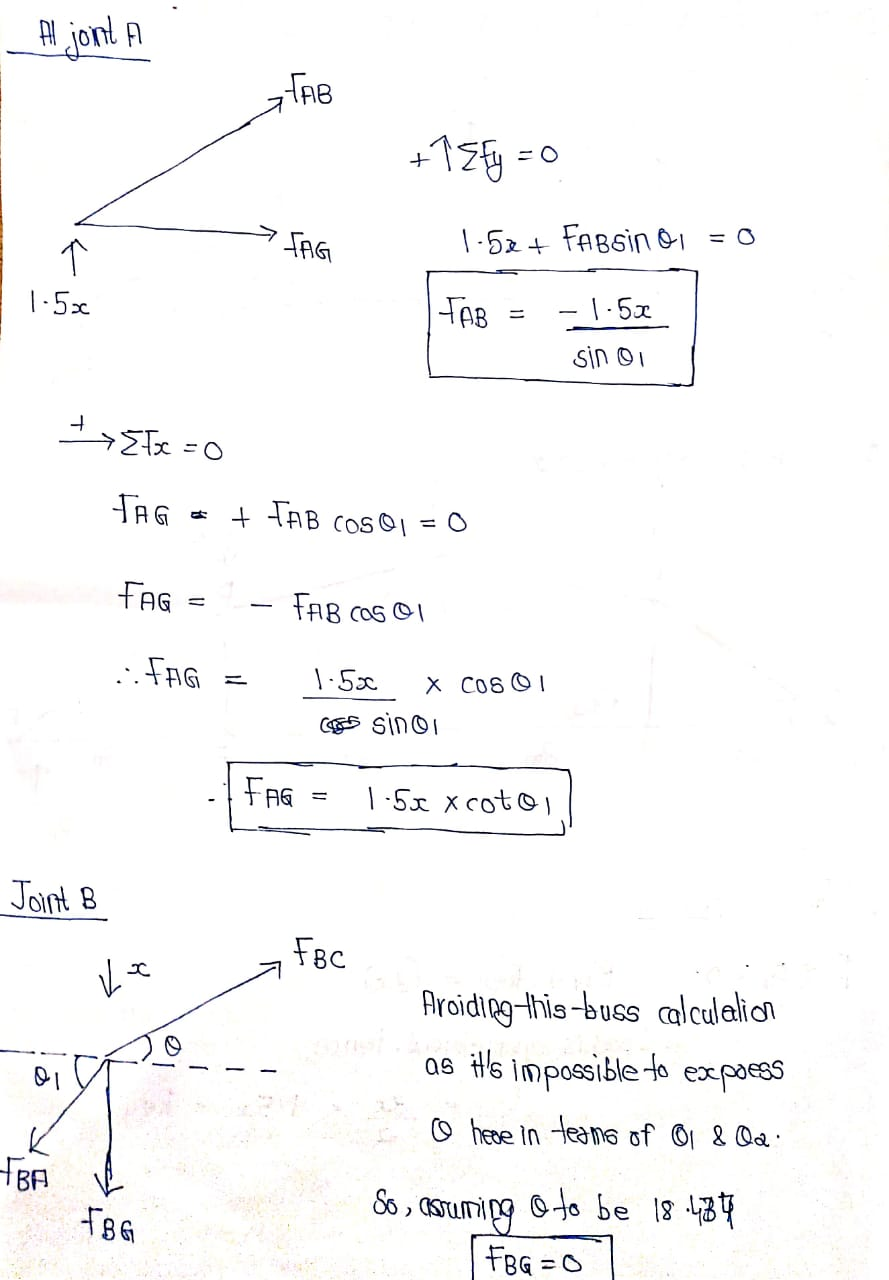 At joint A
FAB
FAG
1.5x
+↑ΣFy = 0
1.5x + FABsin θ1 = 0
FAB = - 1.5x / sin θ1
+→ ΣFx = 0
FAG = + FAB cos θ1 = 0
FAG = - FAB cos θ1
∴ FAG = 1.5x / sin θ1 × cos θ1
FAG = 1.5x × cot θ1
Joint B
↓x
FBC
θ
θ1
FBA
FBG
Avoiding this truss calculation
as it's impossible to express
θ here in terms of θ1 & θ2.
So, assuming θ to be
FBG = 0